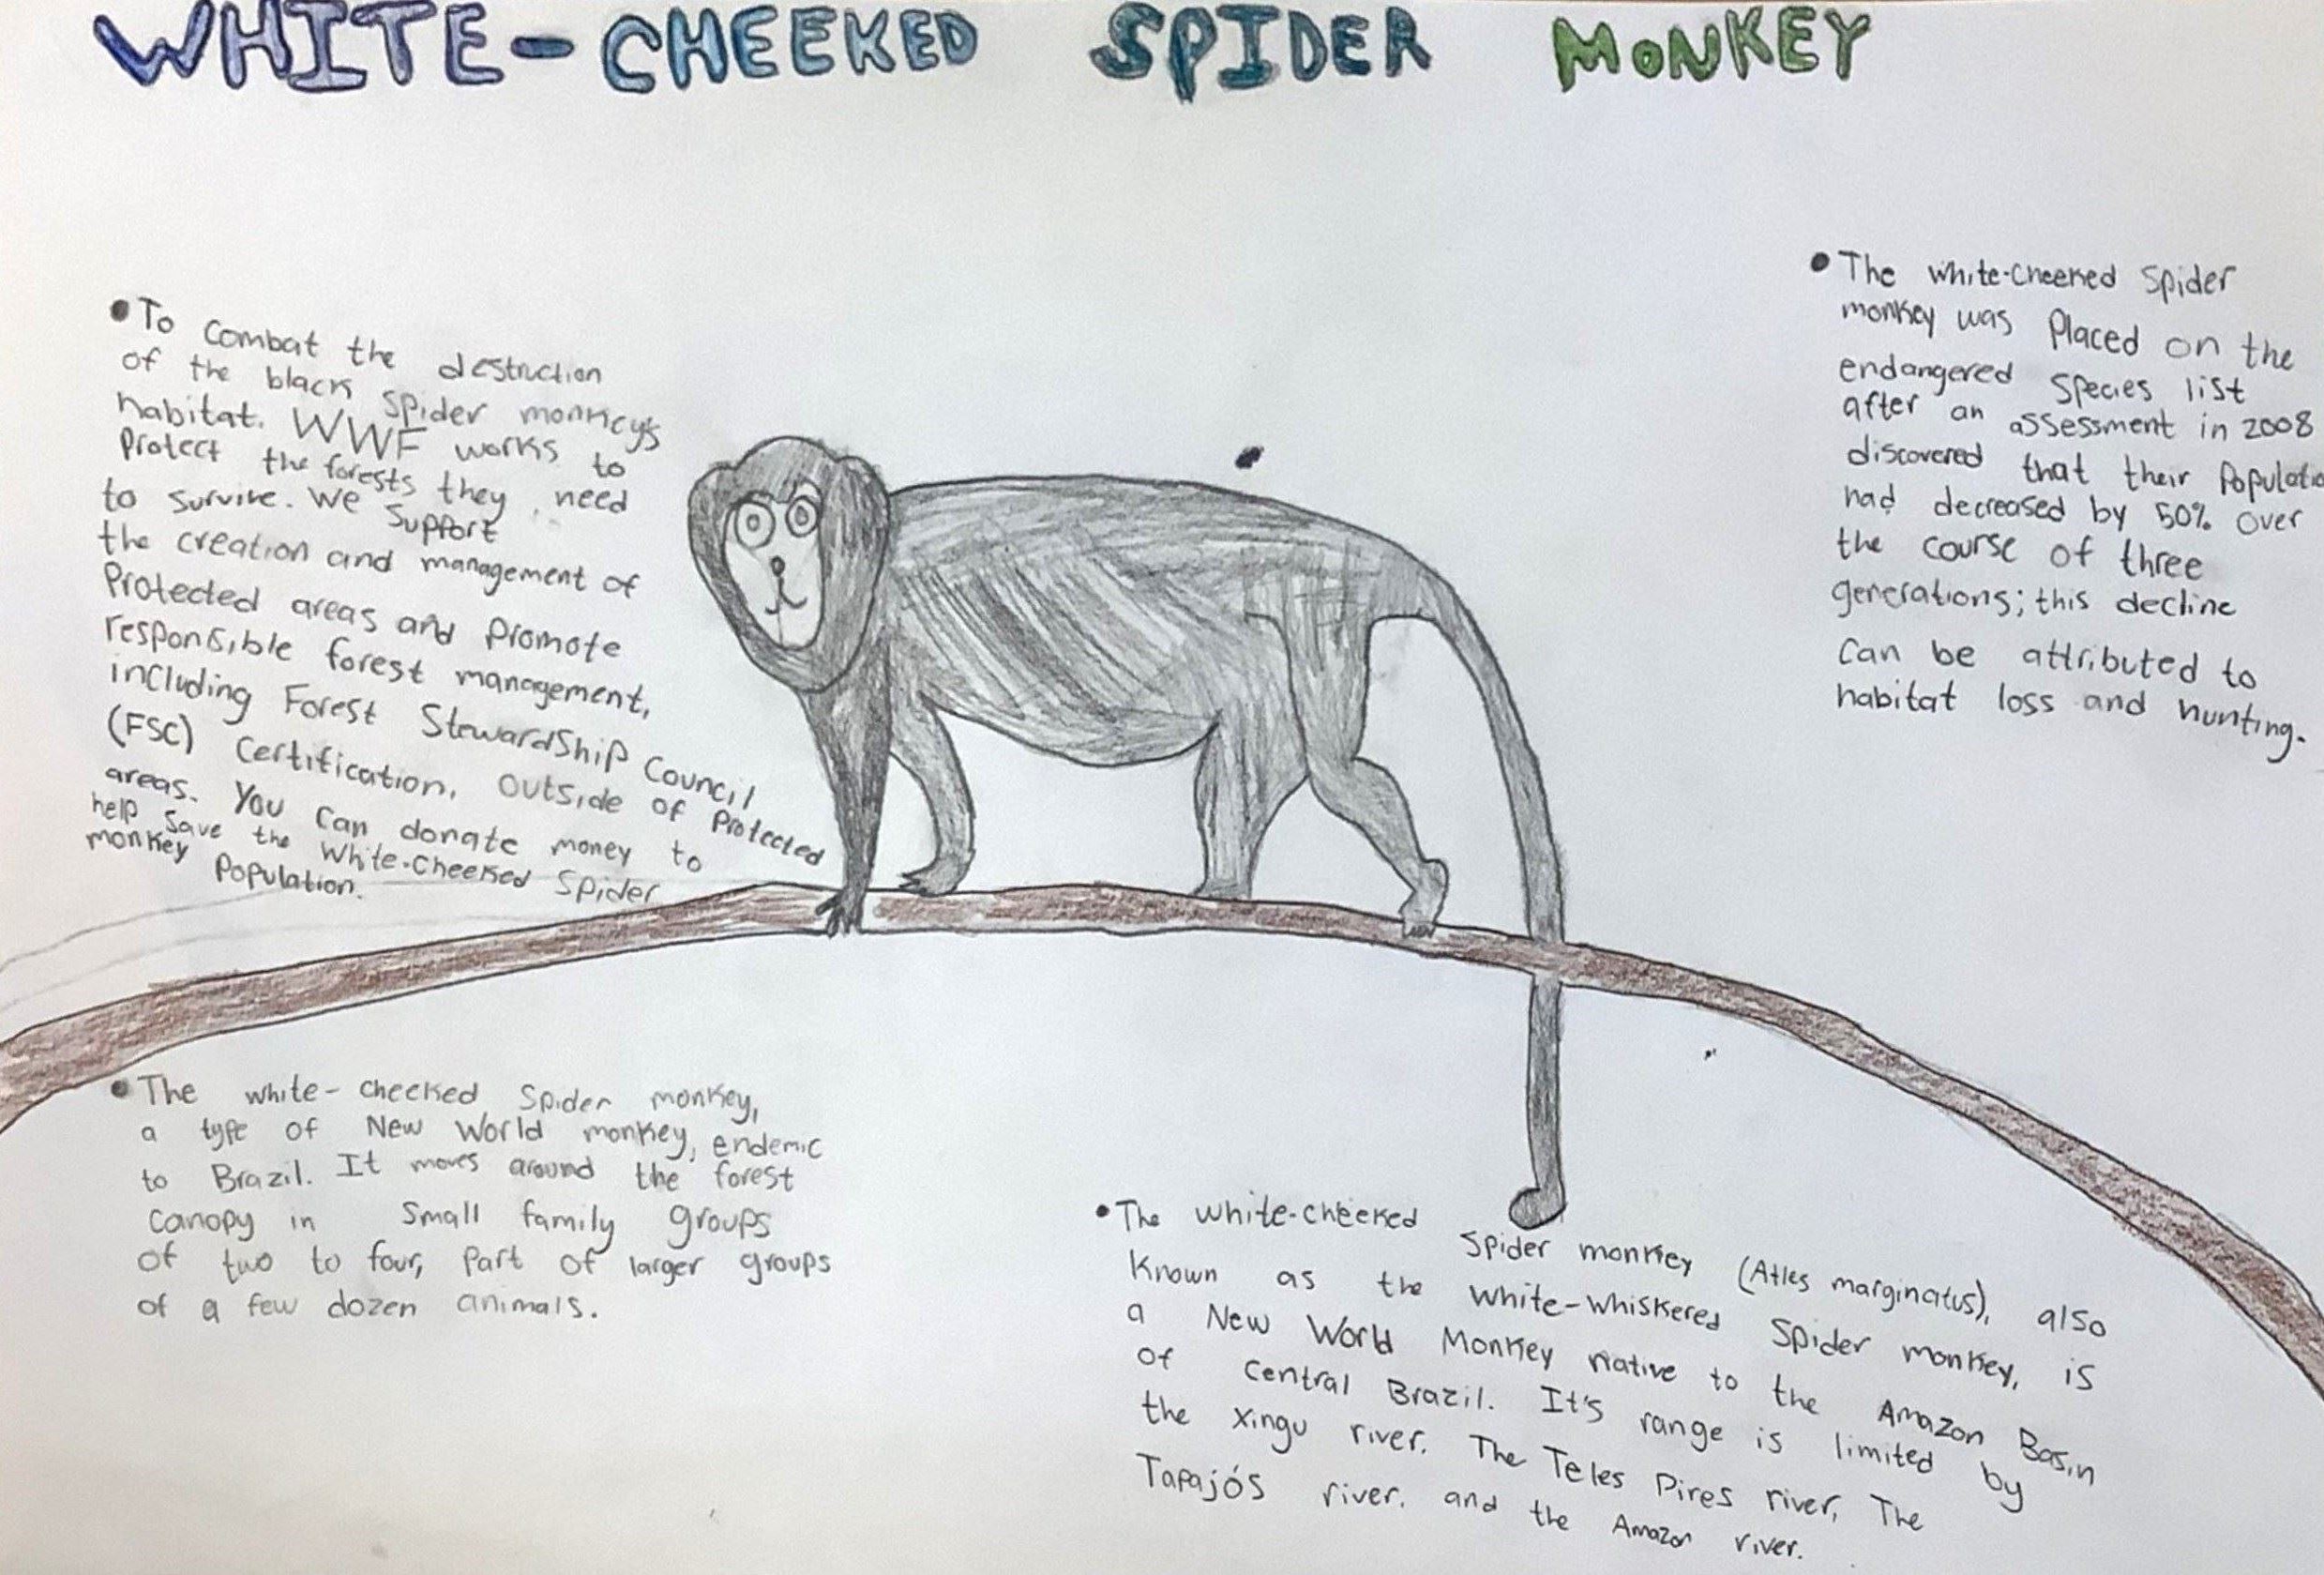 WHITE-CHEEKED SPIDER MONKEY
• To combat the destruction
of the black spider monkey's
habitat. WWF works to
protect the forests they need
to survive. We support
the creation and management of
Protected areas and promote
responsible forest management,
including Forest Stewardship Council
(FSC) certification, outside of protected
areas. You can donate money to
help save the white-cheeked spider
monkey population.
• The white-cheeked spider
monkey was placed on the
endangered species list
after an assessment in 2008
discovered that their populatio
had decreased by 50% over
the course of three
generations; this decline
can be attributed to
habitat loss and hunting.
• The white-cheeked spider monkey,
a type of New World monkey, endemic
to Brazil. It moves around the forest
canopy in small family groups
of two to four, part of larger groups
of a few dozen animals.
• The white-cheeked spider monkey (Atles marginatus), also
known as the white-whiskered spider monkey, is
a New World Monkey native to the Amazon Basin
of central Brazil. It's range is limited by
the Xingu river. The Teles Pires river, The
Tapajós river. and the Amazon river.